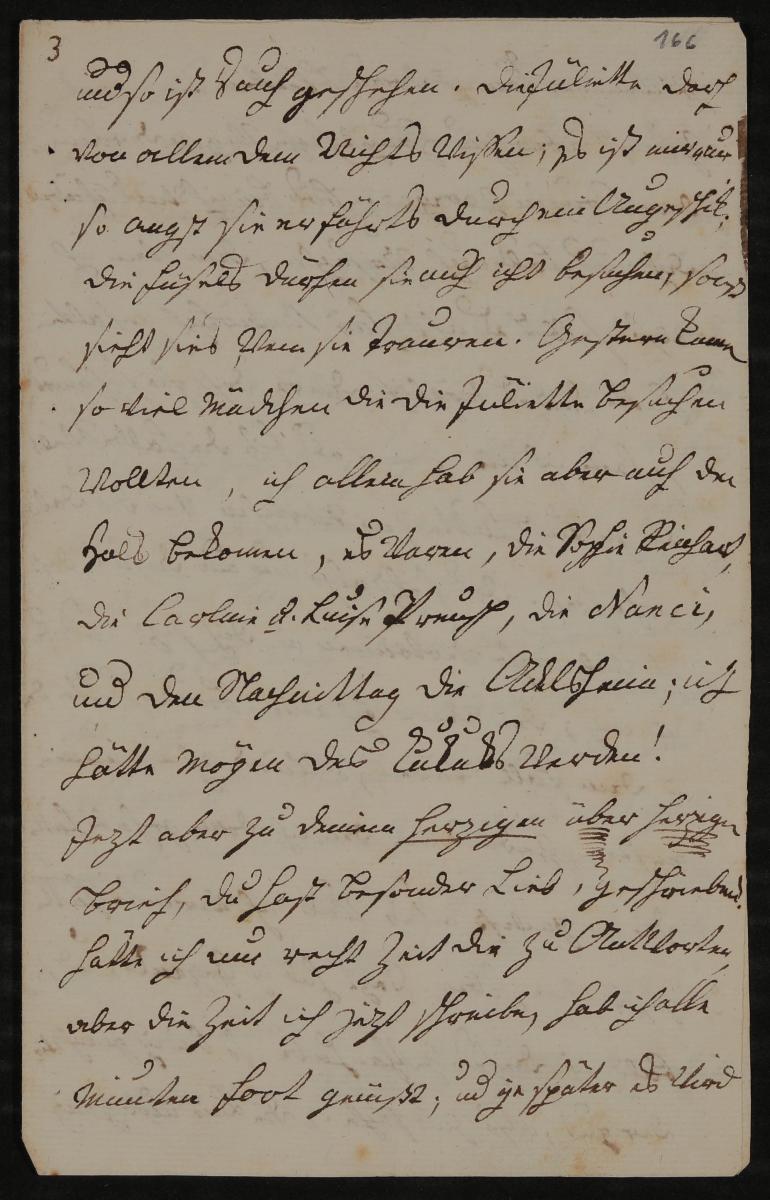 3 166
und so ist's auch geschehen. die Juliette darf
von allem dem Nichts Wissen; es ist mir nur
so angst sie erfährts durch ein Ungeschik.
die Füsels dürfen sie auch nicht besuchen, sonst
sieht sies Wem sie Trauren. Gestern kamen
so viel Mädchen die die Juliette besuchen
Wollten, ich allein hab sie aber auf den
Hals bekomen, es Waren, die Sophie Reinhard,
die Carline u. Luise Preusch, die Nanci,
und den Nachmittag die Adelsheim; ich
hätte Mögen des Kukuks Werden!
Jezt aber zu deinem herzigen über herzigen
Brief, du hast besonder Lieb, geschrieben.
hätte ich nur recht Zeit dir zu Antworten,
aber die Zeit ich jezt schreibe, hab ich alle
Minuten fort gemüßt; und je später es Wird